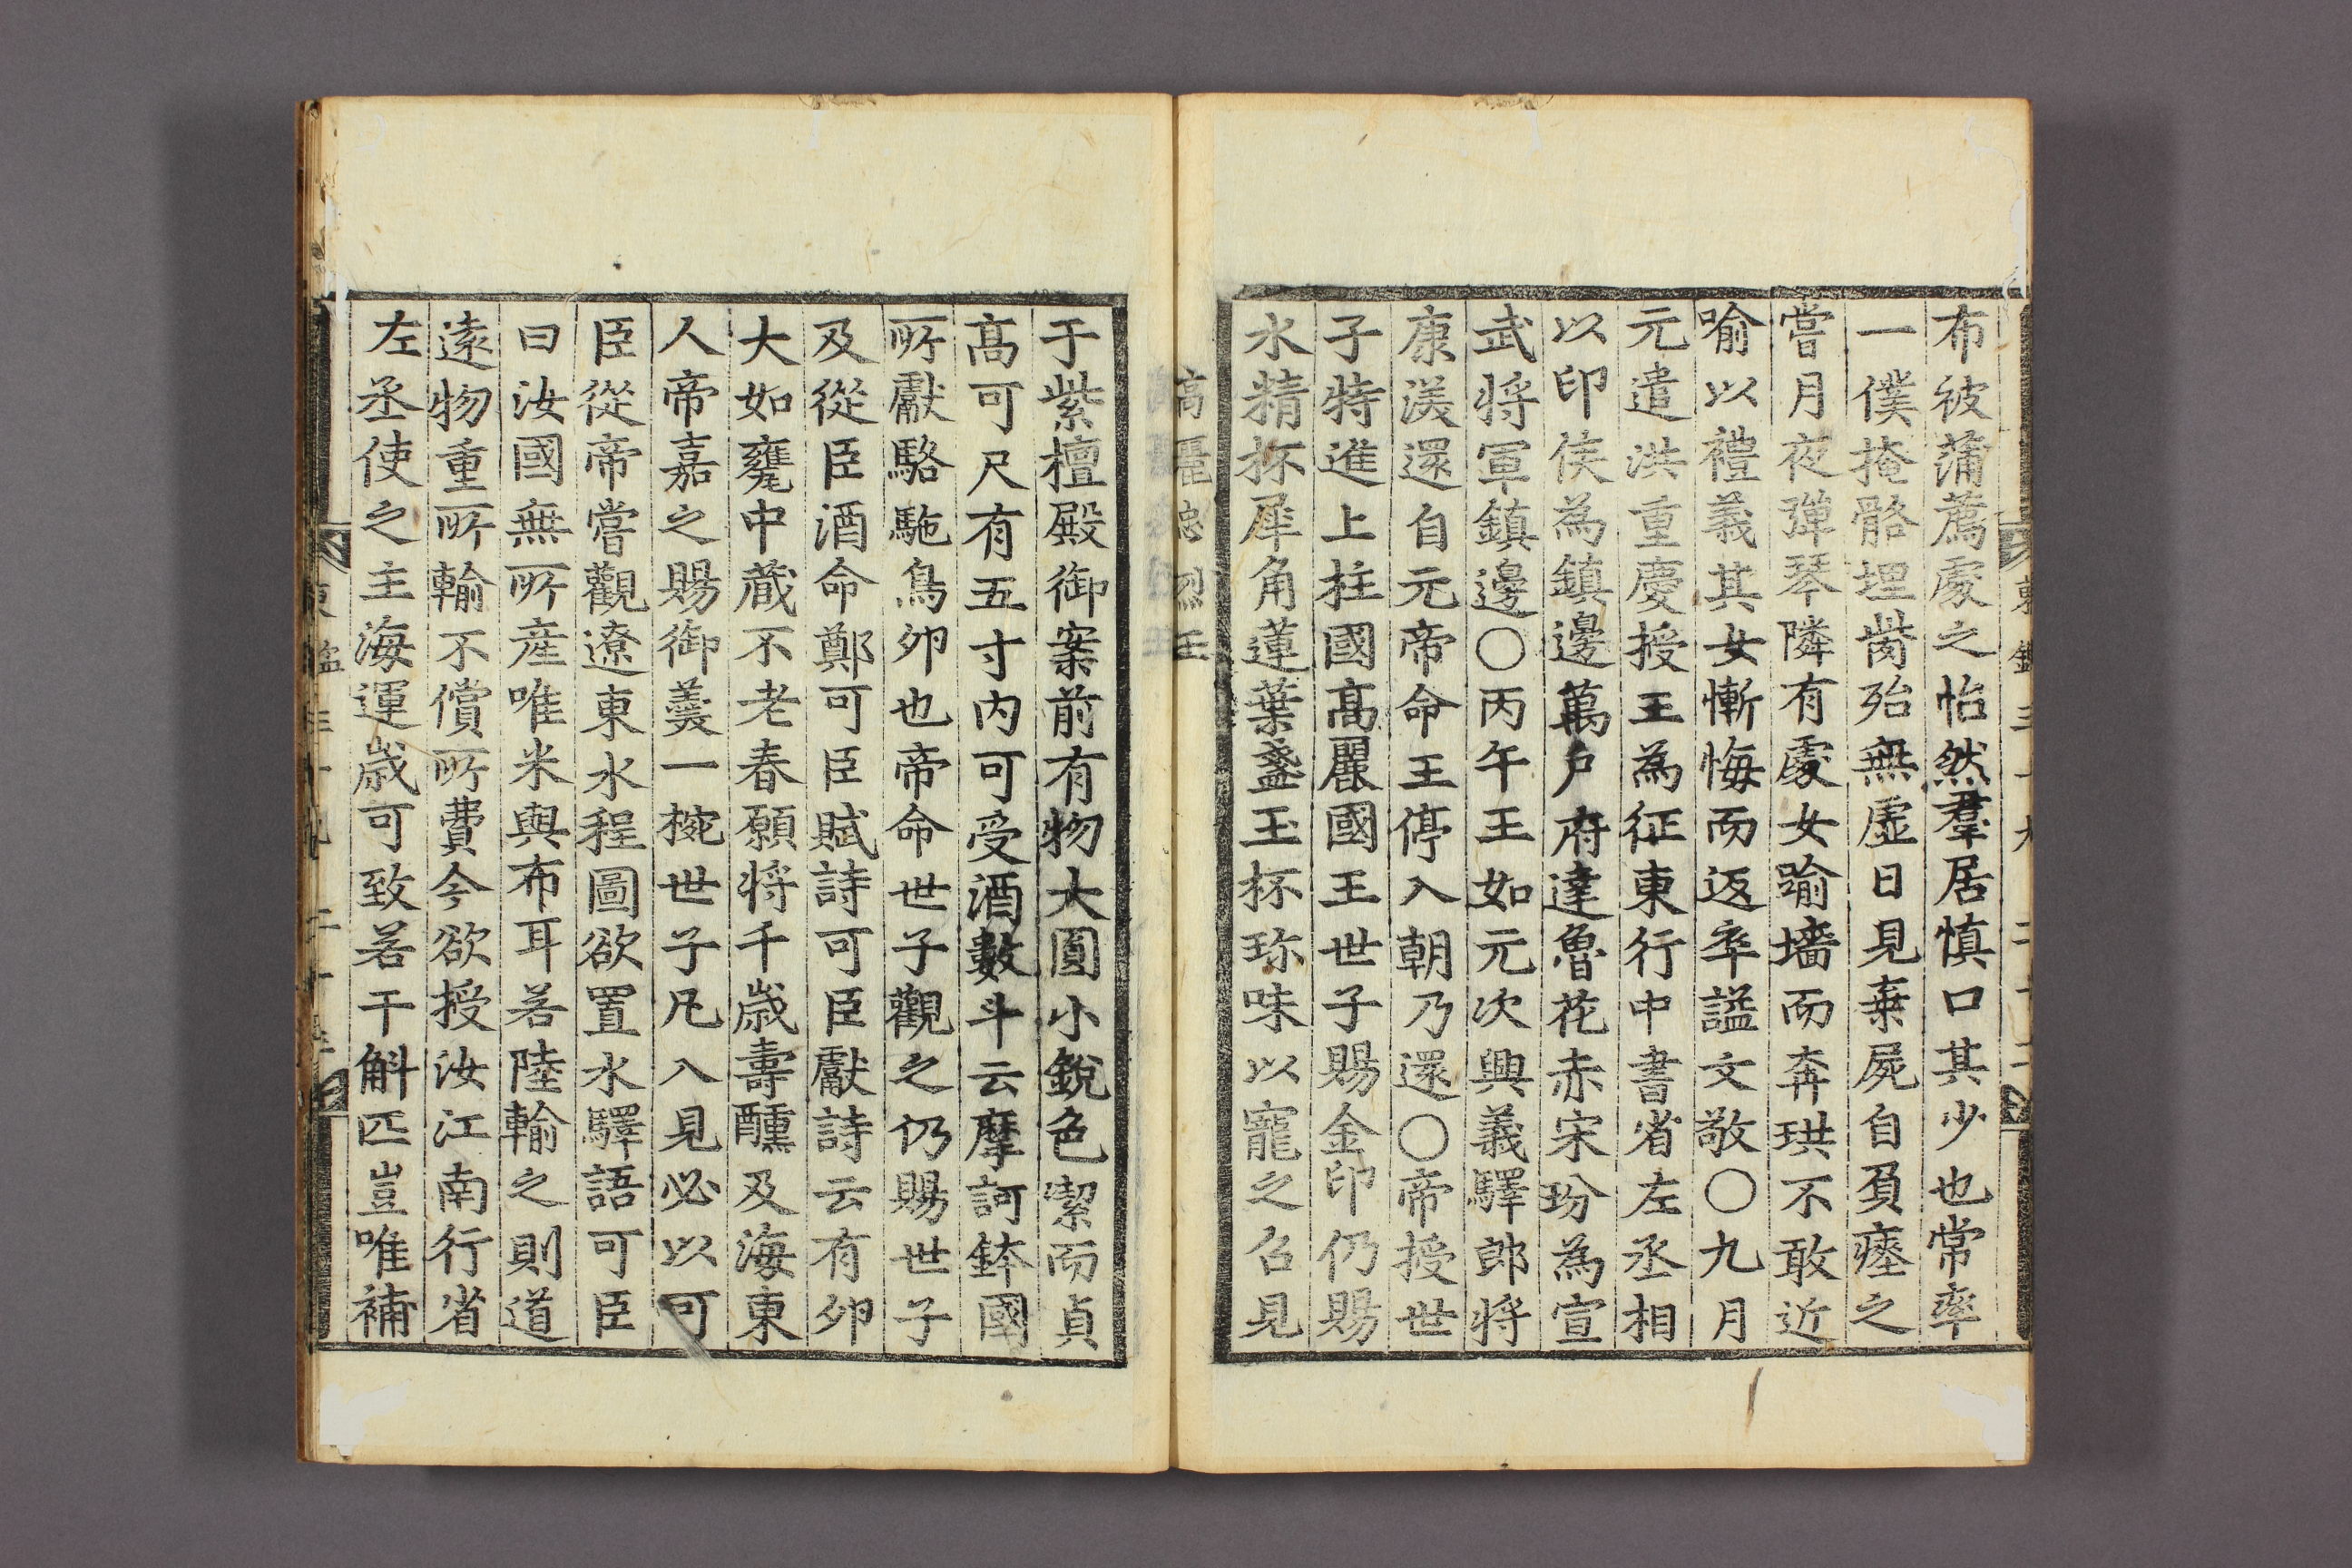 布被蒲薦處之怡然羣居慎口其少也常率
一僕掩骼埋胔殆無虛日見棄屍自負瘞之
嘗月夜彈琴隣有處女踰墻而奔珙不敢近
喻以禮義其女慚悔而返卒謚文敬○九月
元遣洪重慶授王為征東行中書省左丞相
以印侯為鎮邊萬户府達魯花赤宋玢為宣
武將軍鎮邊○丙午王如元次興義驛郎將
康渼還自元帝命王停入朝乃還○帝授世
子特進上柱國高麗國王世子賜金印仍賜
水精杯犀角蓮葉盞玉杯珎味以寵之召見
高麗忠烈王
于紫檀殿御案前有物大圓小銳色潔而貞
髙可尺有五寸内可受酒數斗云摩訶鉢國
所獻駱駞鳥卵也帝命世子觀之仍賜世子
及從臣酒命鄭可臣賦詩可臣獻詩云有卵
大如甕中藏不老春願將千歲壽醺及海東
人帝嘉之賜御羹一椀世子凡入見必以可
臣從帝嘗觀遼東水程圖欲置水驛語可臣
曰汝國無所産唯米與布耳若陸輸之則道
遠物重所輸不償所費今欲授汝江南行省
左丞使之主海運歲可致若干斛匹豈唯補